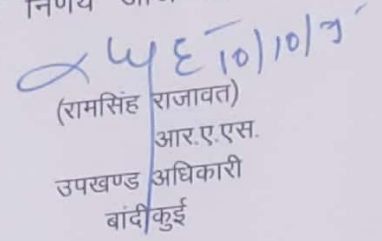 निर्णय
10/10/
(रामसिंह राजावत)
आर.ए.एस.
उपखण्ड अधिकारी
बांदीकुई